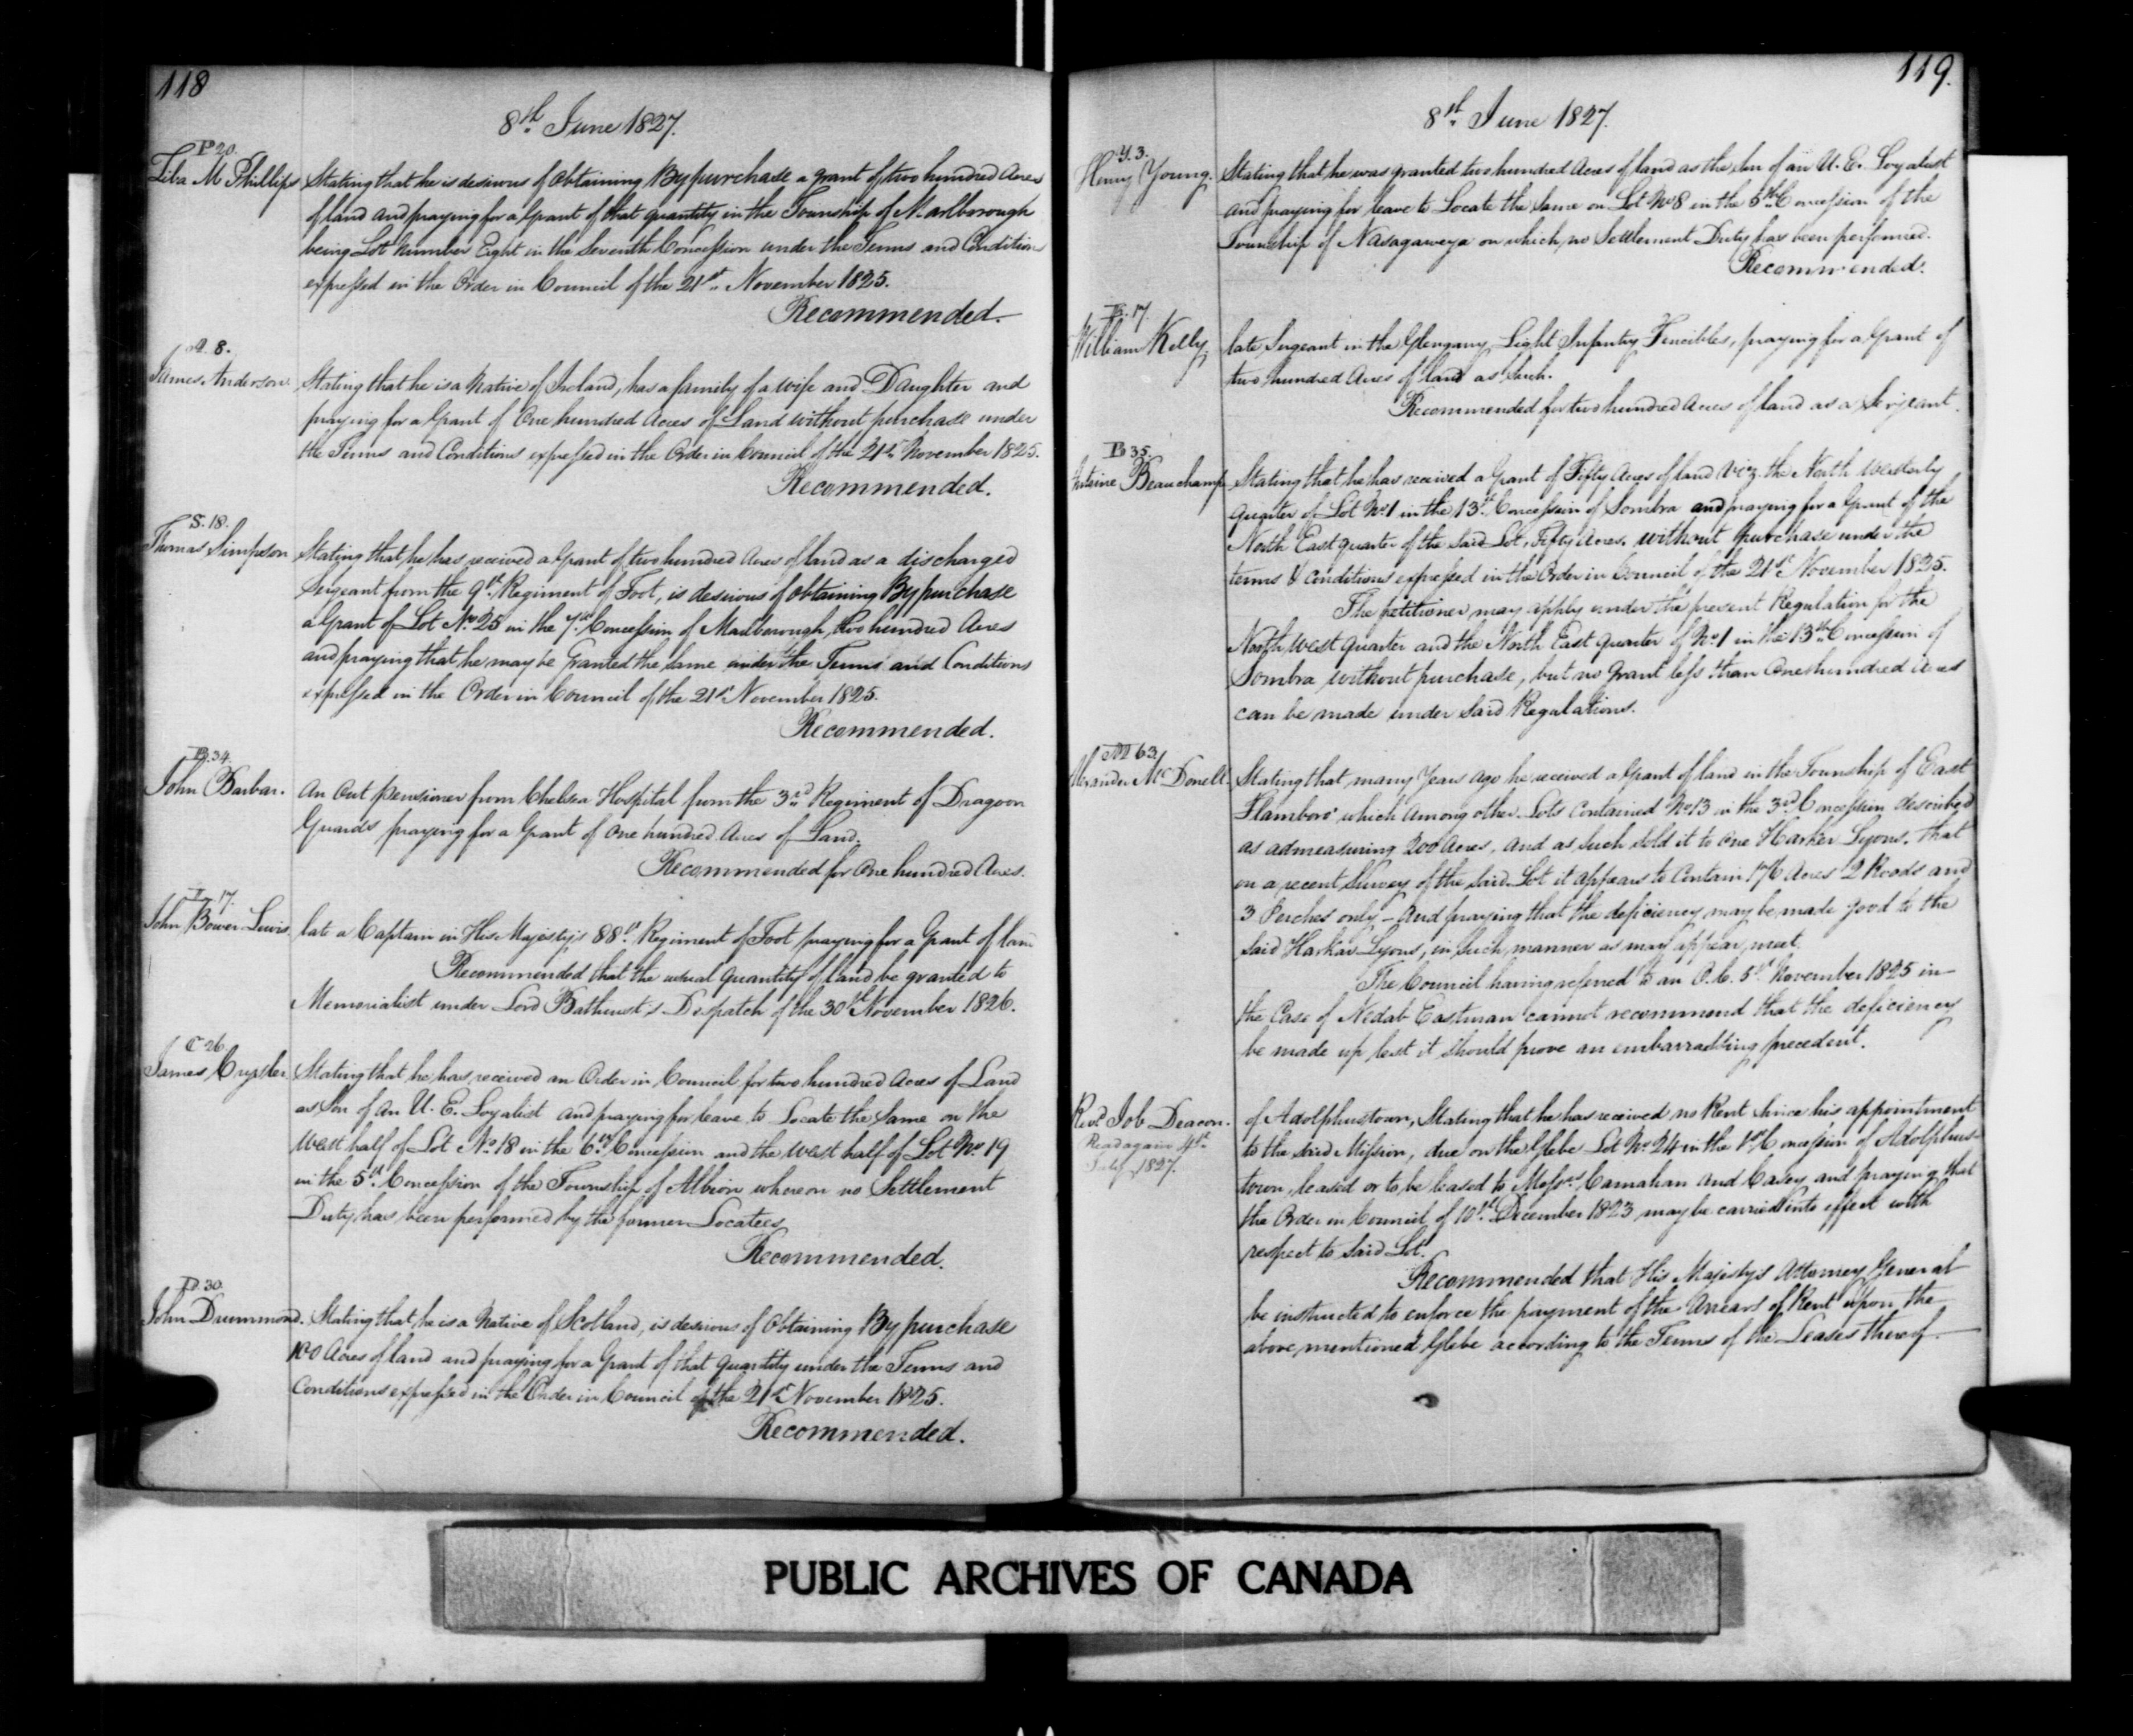 118
8th June 1827.
P 20.
Ziba M Phillips Stating that he is desirous of obtaining By purchase a grant of two hundred Acres
of land and praying for a Grant of that quantity in the Township of Marlborough
being Lot Number Eight in the Seventh Concession under the Terms and Condition
expressed in the Order in Council of the 21st November 1825.
Recommended.
A. 8.
James Anderson Stating that he is a Native of Ireland, has a family of a wife and Daughter and
praying for a Grant of One hundred Acres of Land without purchase under
the Terms and Conditions expressed in the Order in Council of the 21st November 1825.
Recommended.
S. 18.
Thomas Simpson Stating that he has received a Grant of two hundred Acres of land as a discharged
Sergeant from the 9th Regiment of Foot, is desirous of obtaining By purchase
a Grant of Lot No 25 in the 7th Concession of Marlborough, two hundred Acres
and praying that he may be Granted the same under the Terms and Conditions
expressed in the Order in Council of the 21st November 1825.
Recommended.
B. 34.
John Barbar. An Out pensioner from Chelsea Hospital from the 3rd Regiment of Dragoon
Guards praying for a Grant of One hundred Acres of Land.
Recommended for One hundred Acres.
L. 17.
John Bower Lewis late a Captain in His Majesty's 88th Regiment of Foot praying for a Grant of land
Recommended that the usual Quantity of land be granted to
Memorialist under Lord Bathurst's Despatch of the 30th November 1826.
C 26.
James Crysler Stating that he has received an Order in Council for two hundred Acres of Land
as Son of An U. E. Loyalist and praying for leave to Locate the Same on the
West half of Lot No 18 in the 6th Concession and the West half of Lot No 19
in the 5th Concession of the Township of Albion whereon no Settlement
Duty has been performed by the former Locatees
Recommended.
D 30.
John Drummond. Stating that he is a Native of Scotland, is desirous of Obtaining By purchase
100 Acres of land and praying for a Grant of that quantity under the Terms and
Conditions expressed in the Order in Council of the 21st November 1825.
Recommended.
119.
8th June 1827.
Y. 3.
Henry Young. Stating that he was granted two hundred Acres of land as the Son of an U. E. Loyalist
and praying for leave to Locate the Same on Lot No 8 in the 5th Concession of the
Township of Nasagaweya on which no Settlement Duty has been performed.
Recommended.
17.
William Kelly, late Sergeant in the Glengarry Light Infantry Fencibles, praying for a Grant of
two hundred Acres of land as such.
Recommended for two hundred Acres of land as a Serjeant.
B 35.
Antoine Beauchamp Stating that he has received a Grant of Fifty Acres of land Viz. the North Westerly
quarter of Lot No 1 in the 13th Concession of Sombra and praying for a Grant of the
North East quarter of the said Lot, Fifty Acres, without purchase under the
terms & conditions expressed in the Order in Council of the 21st November 1825.
The petitioner may apply under the present Regulation for the
North West quarter and the North East quarter of No 1 in the 13th Concession of
Sombra without purchase, but no Grant less than One hundred Acres
can be made under said Regulations.
M 63
Alexander McDonell. Stating that many Years ago he received a Grant of land in the Township of East
Flamboro' which among other Lots contained No 13 in the 3rd Concession described
as admeasuring 200 Acres, and as such sold it to One Harker Lyons. that
on a recent Survey of the said Lot it appears to Contain 176 Acres 2 Roods and
3 Perches only – And praying that the deficiency may be made good to the
said Harkar Lyons, in such manner as may appear meet.
The Council having referred to an O. C. 5th November 1825 in
the Case of Nedab Eastman cannot recommend that the deficiency
be made up lest it should prove an embarrassing precedent.
Revd Job Deacon. of Adolphustown, Stating that he has received no Rent since his appointment
Read again 4th
July 1827.
to the said Mission, due on the Glebe Lot No 24 in the 1st Concession of Adolphus-
town, leased or to be leased to Messrs Carnahan and Casey and praying that
the Order in Council of 10th December 1823 may be carried into effect with
respect to said Lot.
Recommended that His Majesty's Attorney General
be instructed to enforce the payment of the Arrears of Rent upon the
above mentioned Glebe according to the Terms of the Leases thereof.
PUBLIC ARCHIVES OF CANADA